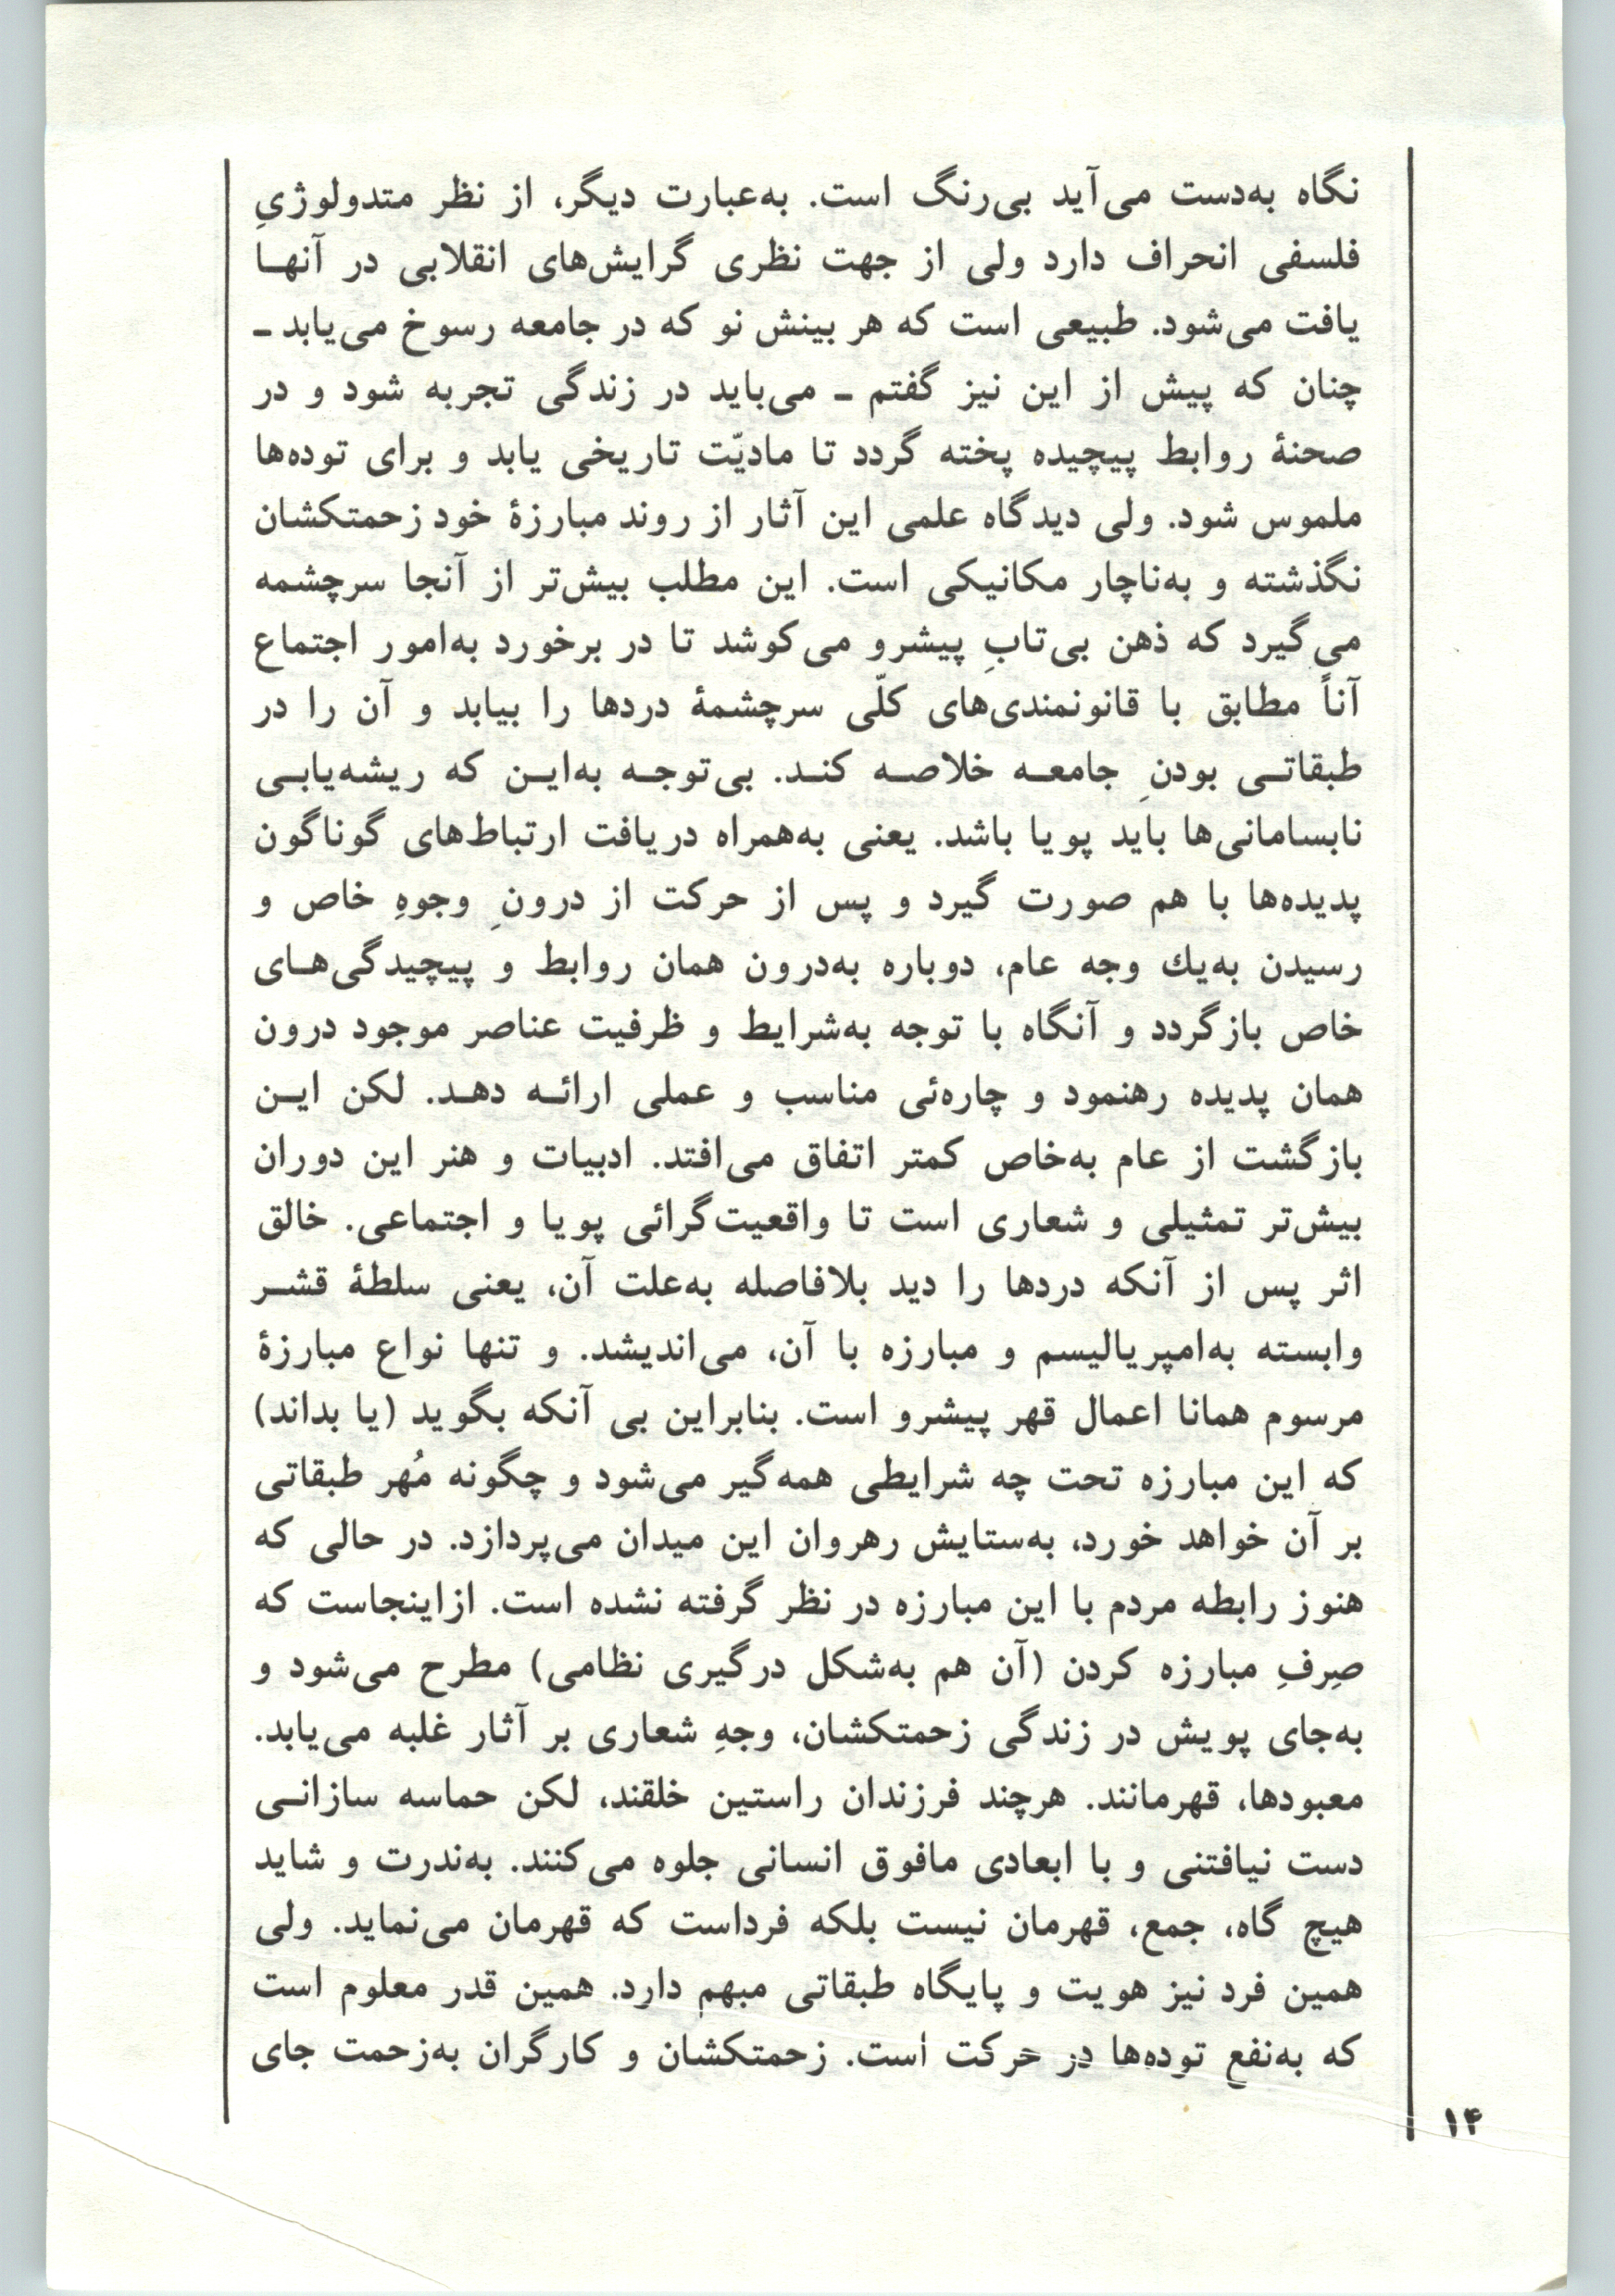 نگاه به‌دست می‌آید بی‌رنگ است. به‌عبارت دیگر، از نظر متدولوژیِ
فلسفی انحراف دارد ولی از جهت نظری گرایش‌های انقلابی در آنها
یافت می‌شود. طبیعی است که هر بینش نو که در جامعه رسوخ می‌یابد ـ
چنان که پیش از این نیز گفتم ـ می‌باید در زندگی تجربه شود و در
صحنهٔ روابط پیچیده پخته گردد تا مادیّت تاریخی یابد و برای توده‌ها
ملموس شود. ولی دیدگاه علمی این آثار از روند مبارزهٔ خود زحمتکشان
نگذشته و به‌ناچار مکانیکی است. این مطلب بیش‌تر از آنجا سرچشمه
می‌گیرد که ذهن بی‌تابِ پیشرو می‌کوشد تا در برخورد به‌امور اجتماع
آناً مطابق با قانونمندی‌های کلّی سرچشمهٔ دردها را بیابد و آن را در
طبقاتی بودنِ جامعه خلاصه کند. بی‌توجه به‌این که ریشه‌یابی
نابسامانی‌ها باید پویا باشد. یعنی به‌همراه دریافت ارتباط‌های گوناگون
پدیده‌ها با هم صورت گیرد و پس از حرکت از درونِ وجوهِ خاص و
رسیدن به‌یك وجه عام، دوباره به‌درون همان روابط و پیچیدگی‌های
خاص بازگردد و آنگاه با توجه به‌شرایط و ظرفیت عناصر موجود درون
همان پدیده رهنمود و چاره‌ئی مناسب و عملی ارائه دهد. لکن این
بازگشت از عام به‌خاص کمتر اتفاق می‌افتد. ادبیات و هنر این دوران
بیش‌تر تمثیلی و شعاری است تا واقعیت‌گرائی پویا و اجتماعی. خالق
اثر پس از آنکه دردها را دید بلافاصله به‌علت آن، یعنی سلطهٔ قشر
وابسته به‌امپریالیسم و مبارزه با آن، می‌اندیشد. و تنها نواع مبارزهٔ
مرسوم همانا اعمال قهر پیشرو است. بنابراین بی آنکه بگوید (یا بداند)
که این مبارزه تحت چه شرایطی همه‌گیر می‌شود و چگونه مُهر طبقاتی
بر آن خواهد خورد، به‌ستایش رهروان این میدان می‌پردازد. در حالی که
هنوز رابطه مردم با این مبارزه در نظر گرفته نشده است. ازاینجاست که
صِرفِ مبارزه کردن (آن هم به‌شکل درگیری نظامی) مطرح می‌شود و
به‌جای پویش در زندگی زحمتکشان، وجهِ شعاری بر آثار غلبه می‌یابد.
معبودها، قهرمانند. هرچند فرزندان راستین خلقند، لکن حماسه سازانی
دست نیافتنی و با ابعادی مافوق انسانی جلوه می‌کنند. به‌ندرت و شاید
هیچ گاه، جمع، قهرمان نیست بلکه فرداست که قهرمان می‌نماید. ولی
همین فرد نیز هویت و پایگاه طبقاتی مبهم دارد. همین قدر معلوم است
که به‌نفع توده‌ها در حرکت است. زحمتکشان و کارگران به‌زحمت جای
۱۴